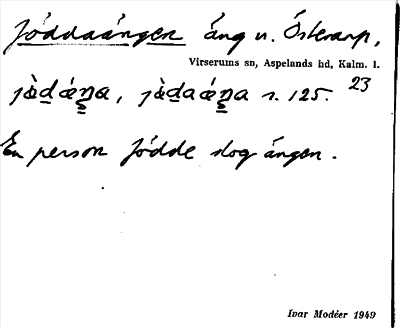 Jöddaängen äng n. Österarp,
Virserums sn, Aspelands hd, Kalm. l.
23
s. 125.
En person Jödde slog ängen.
Ivar Modéer 1949